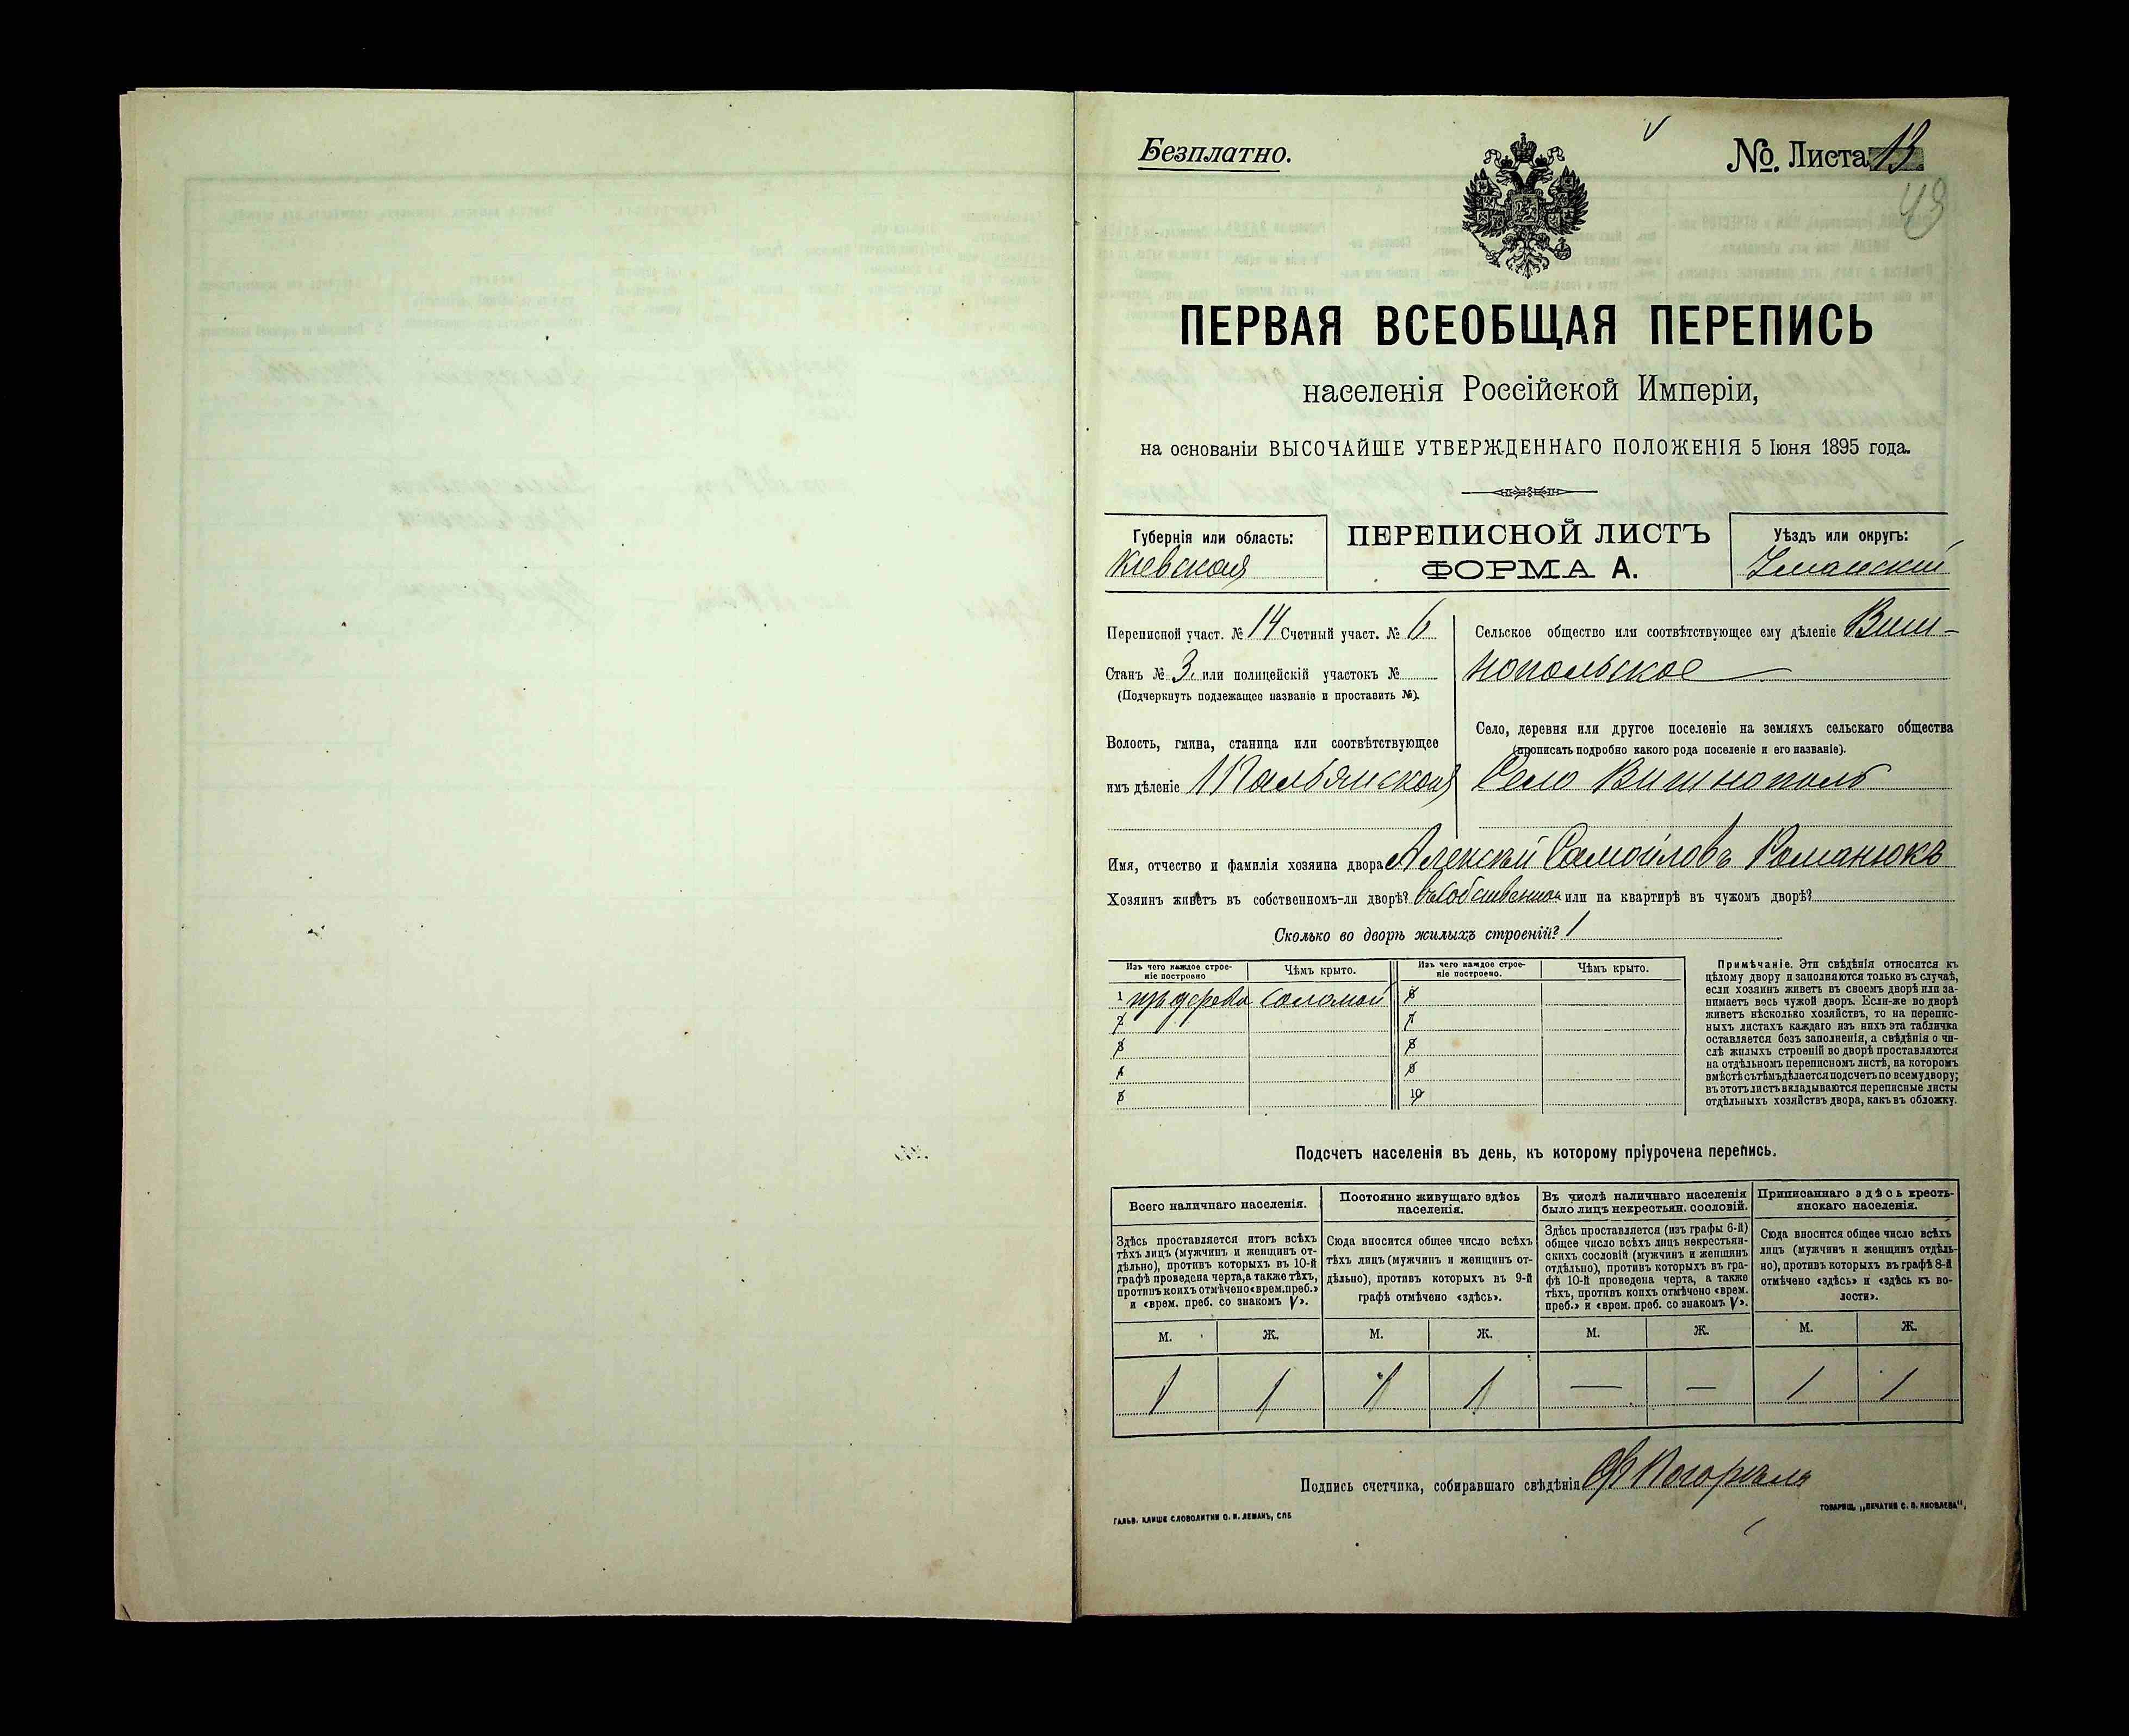 Безплатно.
№. Листа 13
49
ПЕРВАЯ ВСЕОБЩАЯ ПЕРЕПИСЬ
населенія Россійской Имперіи,
на основаніи ВЫСОЧАЙШЕ УТВЕРЖДЕННАГО ПОЛОЖЕНІЯ 5 Іюня 1895 года.
Губернія или область:
Кіевская
ПЕРЕПИСНОЙ ЛИСТЪ
ФОРМА А.
Уѣздъ или округъ:
Уманскій
Переписной участ. № 14 Счетный участ. № 6
Станъ № 3, или полицейскій участокъ №
(Подчеркнуть подлежащее названіе и проставить №).
Волость, гмина, станица или соотвѣтствующее
имъ дѣленіе Тальянская
Сельское общество или соотвѣтствующее ему дѣленіе Виш-
нопольское
Село, деревня или другое поселеніе на земляхъ сельскаго общества
(прописать подробно какого рода поселеніе и его названіе).
Село Вишнополь
Имя, отчество и фамилія хозяина двора Алексѣй Самойловъ Романюкъ
Хозяинъ живетъ въ собственномъ-ли дворѣ? въ собственномъ или на квартирѣ въ чужомъ дворѣ?
Сколько во дворѣ жилыхъ строеній? 1
Изъ чего каждое строе-
ніе построено
Чѣмъ крыто.
Изъ чего каждое строе-
ніе построено.
Чѣмъ крыто.
1 изъ дерева соломой 6
2 7
3 8
4 9
5 10
Примѣчаніе. Эти свѣдѣнія относятся къ
цѣлому двору и заполняются только въ случаѣ,
если хозяинъ живетъ въ своемъ дворѣ или за-
нимаетъ весь чужой дворъ. Если-же во дворѣ
живетъ нѣсколько хозяйствъ, то на перепис-
ныхъ листахъ каждаго изъ нихъ эта табличка
оставляется безъ заполненія, а свѣдѣнія о чи-
слѣ жилыхъ строеній во дворѣ проставляются
на отдѣльномъ переписномъ листѣ, на которомъ
вмѣстѣ съ тѣмъ дѣлается подсчетъ по всему двору;
въ этотъ листъ вкладываются переписные листы
отдѣльныхъ хозяйствъ двора, какъ въ обложку.
Подсчетъ населенія въ день, къ которому пріурочена перепись.
Всего наличнаго населенія.
Здѣсь проставляется итогъ всѣхъ
тѣхъ лицъ (мужчинъ и женщинъ от-
дѣльно), противъ которыхъ въ 10-й
графѣ проведена черта, а также тѣхъ,
противъ коихъ отмѣчено «врем. преб.»
и «врем. преб. со знакомъ V».
Постоянно живущаго здѣсь
населенія.
Сюда вносится общее число всѣхъ
тѣхъ лицъ (мужчинъ и женщинъ от-
дѣльно), противъ которыхъ въ 9-й
графѣ отмѣчено «здѣсь».
Въ числѣ наличнаго населенія
было лицъ некрестьян. сословій.
Здѣсь проставляется (изъ графы 6-й)
общее число всѣхъ лицъ некрестьян-
скихъ сословій (мужчинъ и женщинъ
отдѣльно), противъ которыхъ въ гра-
фѣ 10-й проведена черта, а также
тѣхъ, противъ коихъ отмѣчено «врем.
преб.» и «врем. преб. со знакомъ V».
Приписаннаго здѣсь кресть-
янскаго населенія.
Сюда вносится общее число всѣхъ
лицъ (мужчинъ и женщинъ отдѣль-
но), противъ которыхъ въ графѣ 8-й
отмѣчено «здѣсь» и «здѣсь къ во-
лости».
М. Ж. М. Ж. М. Ж. М. Ж.
1 1 1 1 — — 1 1
Подпись счетчика, собиравшаго свѣдѣнія
ГАЛЬВ. КЛИШЕ СЛОВОЛИТНИ О. И. ЛЕМАНЪ, СПБ
ТОВАРИЩ. „ПЕЧАТНЯ С. П. ЯКОВЛЕВА",